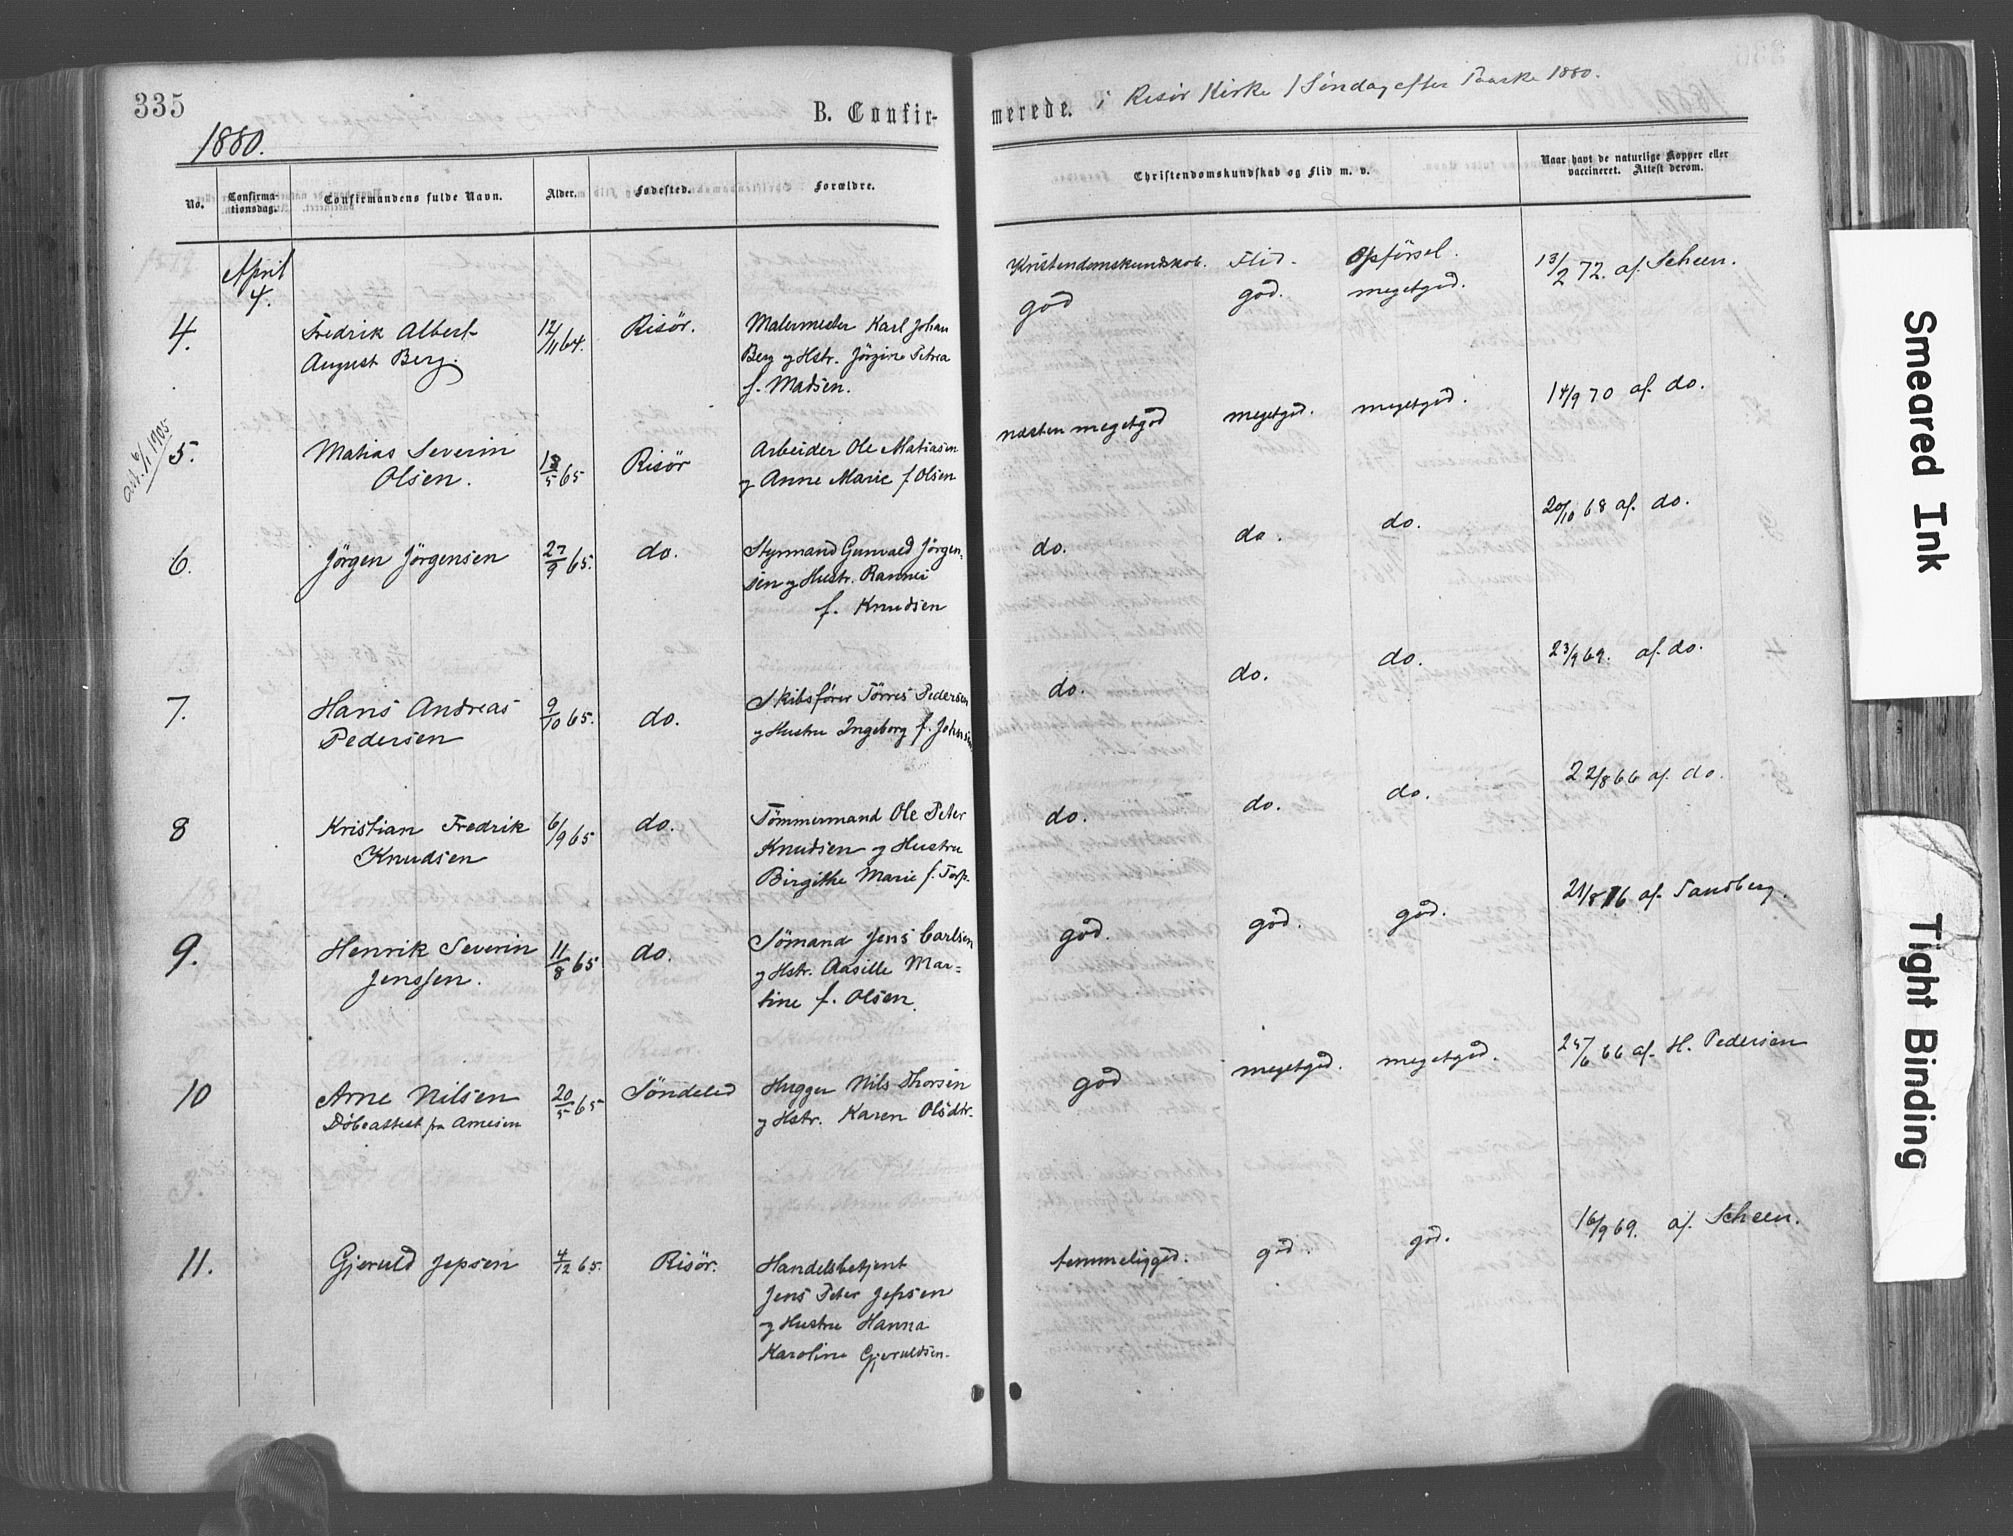 335
1880.
B. Confirmerede. i Risör Kirke 1 Söndag efter Paaske 1880.
No. Confirmationsdag. Confirmandens fulde Navn. Alder. Fødested. Forældre. Christendomskundskab og Flid m. v. Naar havt de naturlige Kopper eller vaccineret. Attest derom.
April
4.
Kristendomskundskab. Flid. Opförsel.
4. Fredrik Albert
August Berg.
12/11 64. Risör.
Malermester Karl Johan
Berg og Hstr. Jörgine Petrea
f. Madsen.
god god. megetgod. 13/2 72. af. Scheen.
att. 6/1 1905
5. Matias Severin
Olsen.
18/5 65 Risör
Arbeider Ole Matiasen
og Anne Marie f Olsen
næsten megetgod megetgod. megetgod. 14/9 70 af. do.
6. Jörgen Jörgensen 27/9 65. do.
Styrmand Gunvald Jörgen-
sen og Hustr. Rannei
f. Knudsen
do. do. do. 20/10 68 af. do.
7. Hans Andreas
Pedersen
9/10 65. do.
Skibsförer Törres Pedersen
og Hustru Ingeborg f. Johnsen
do. do. do. 23/9 69. af. do.
8 Kristian Fredrik
Knudsen
6/9 65 do.
Tömmermand Ole Peter
Knudsen og Hustru
Birgithe Marie f. Torp.
do. do. do. 22/8 66 af. do.
9. Henrik Severin
Jenssen.
11/8 65 do.
Sömand Jens Carlsen
og Hstr. Aasille Mar=
tine f. Olsen.
god. god. god. 21/8 76 af. Sandberg.
10 Arne Nilsen
Döbeattest fra
20/5 65 Söndeled
Hugger Nils Thorsen
og Hstr. Karen Olsdtr.
god megetgod. megetgod. 25/6 66 af. H. Pedersen
11. Gjeruld Jepsen 4/12 65. Risör.
Handelsbetjent
Jens Peter Jepsen
og Hustru Hanna
Karoline Gjeruldsen.
temmeliggod. god. god. 16/9 69. af. Scheen.
Smeared Ink
Tight Binding